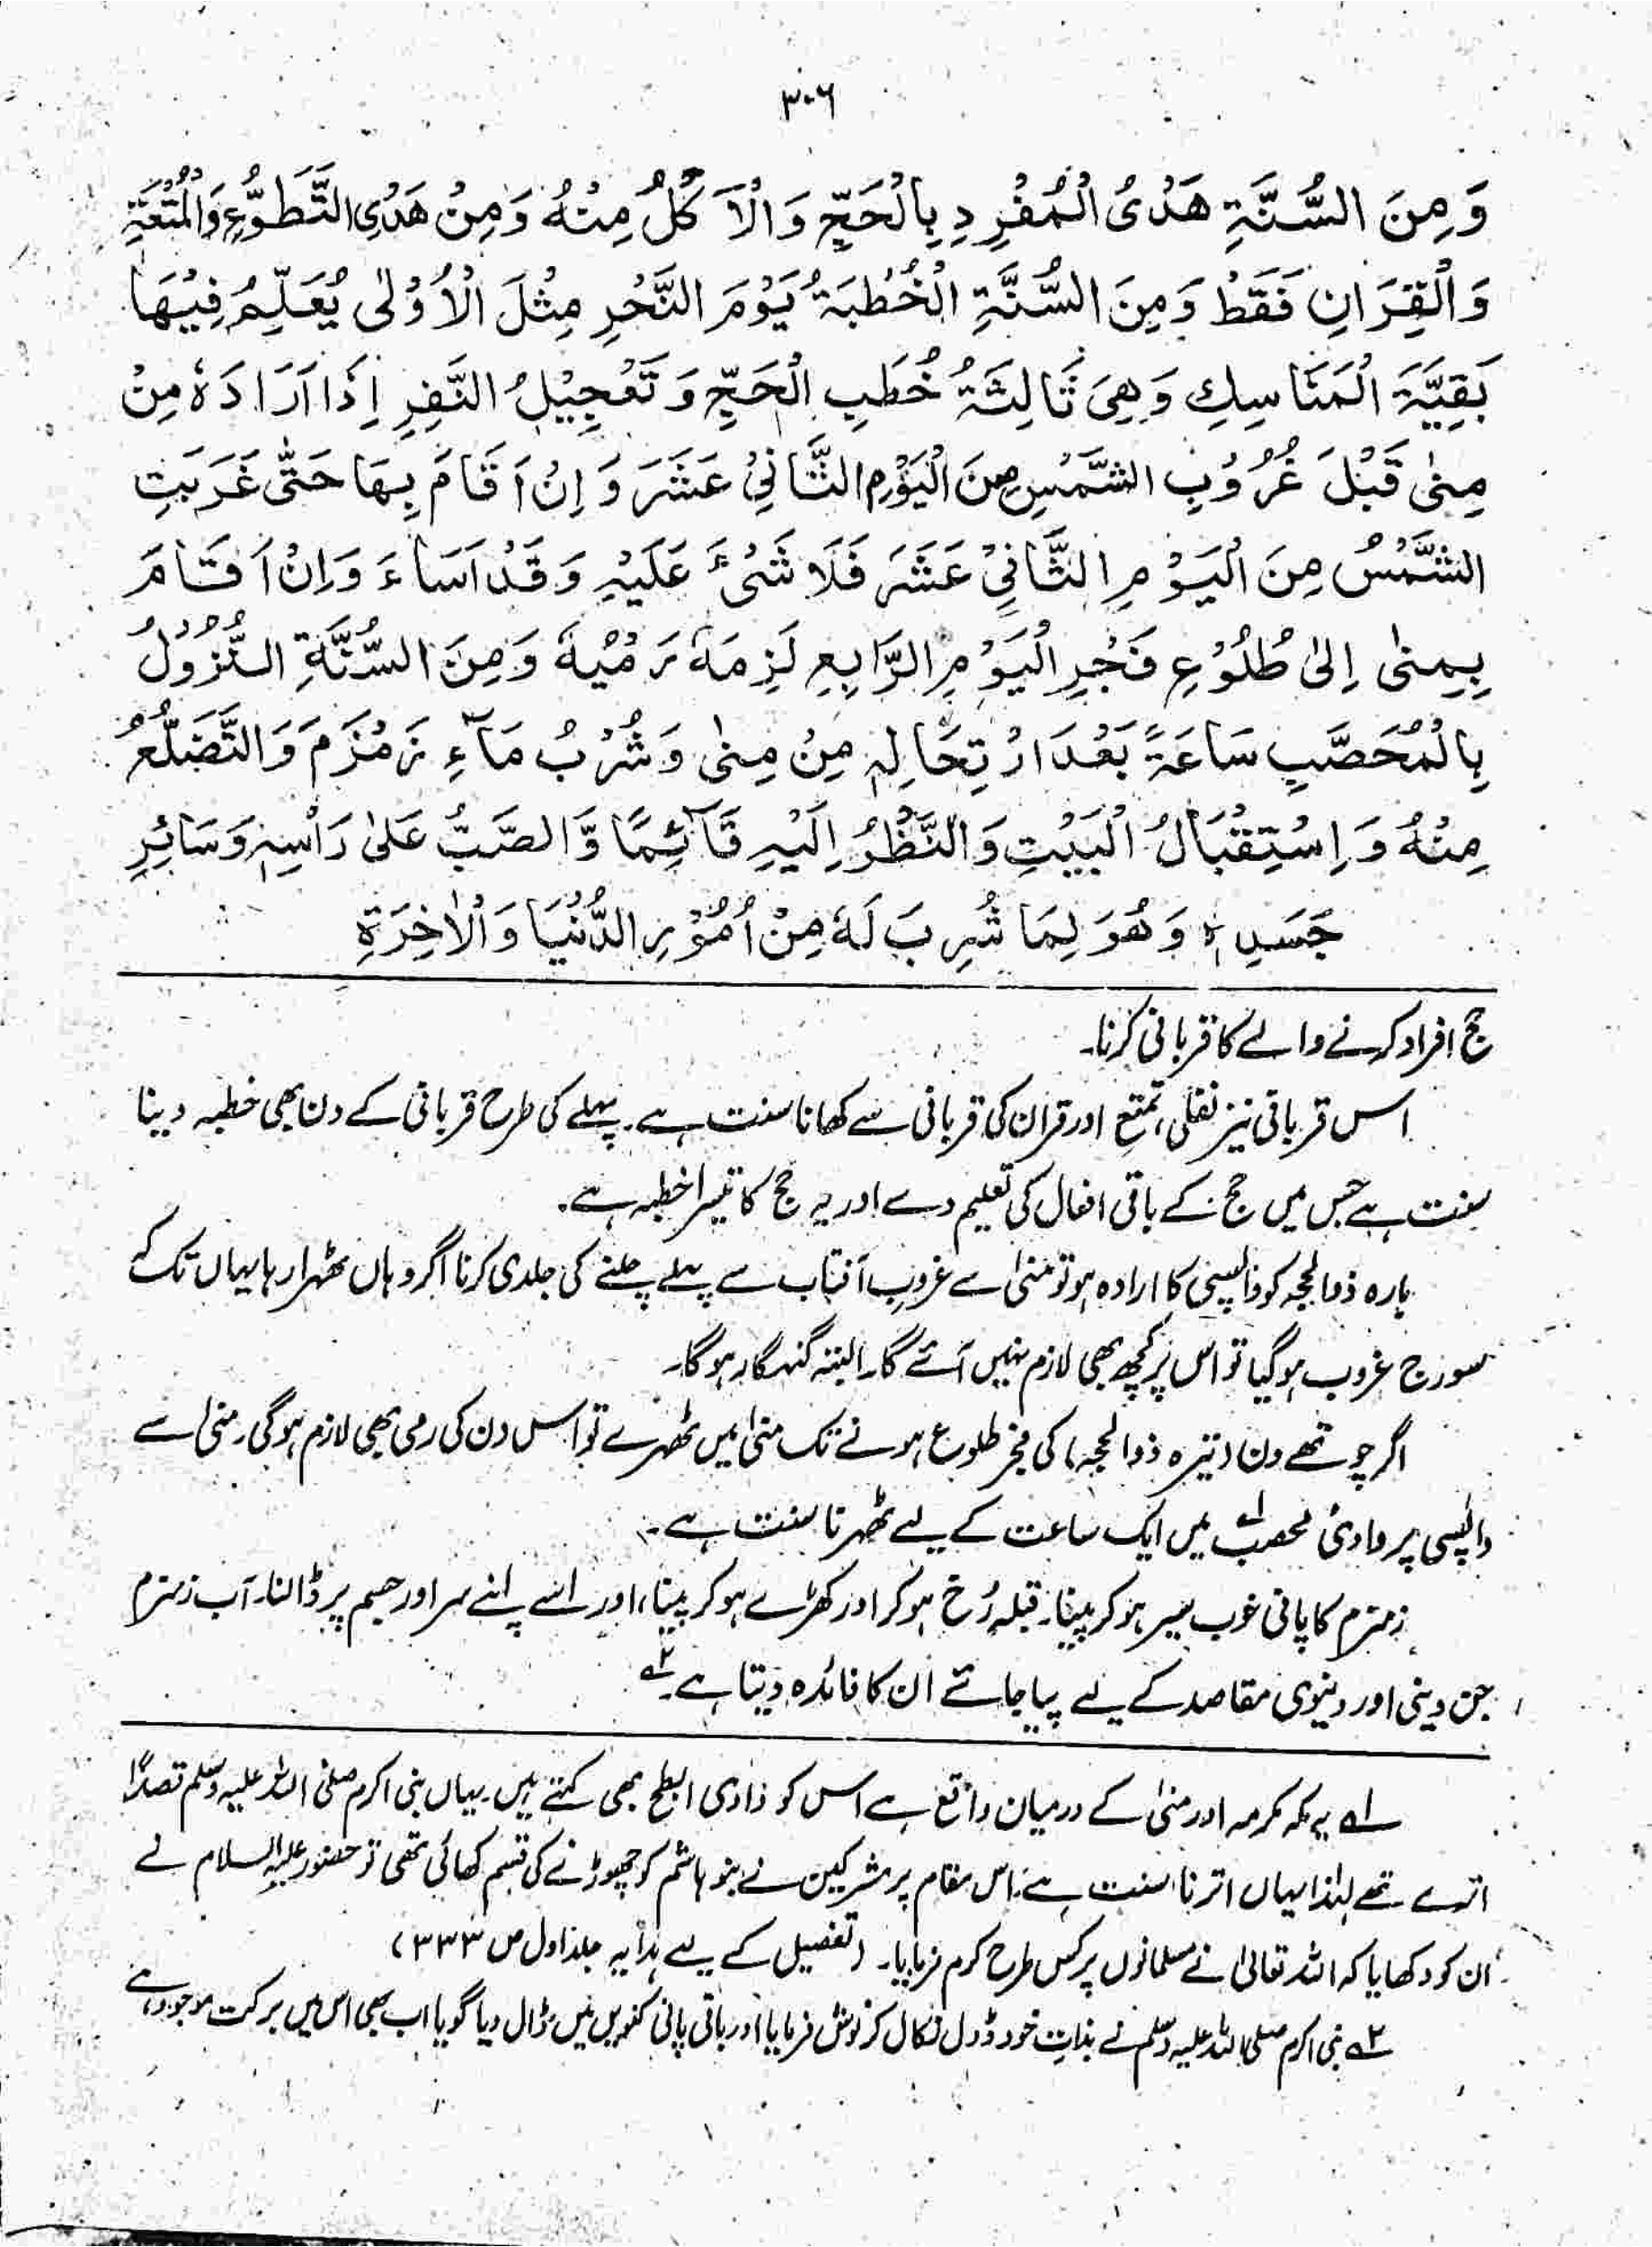 ۳۰۶
وَمِنَ السُّنَّةِ هَدْیُ الْمُفْرِدِ بِالْحَجِّ وَالْاَکْلُ مِنْهُ وَمِنْ هَدْیِ التَّطَوُّعِ وَالْمُتْعَةِ
وَالْقِرَانِ فَقَطْ وَمِنَ السُّنَّةِ الْخُطْبَةُ یَوْمَ النَّحْرِ مِثْلَ الْاُوْلٰی یُعَلِّمُ فِیْهَا
بَقِیَّةَ الْمَنَاسِكِ وَهِیَ ثَالِثَةُ خُطَبِ الْحَجِّ وَتَعْجِیْلُ النَّفِرِ اِذَا اَرَادَهٗ مِنْ
مِنٰی قَبْلَ غُرُوْبِ الشَّمْسِ مِنَ الْیَوْمِ الثَّانِیْ عَشَرَ وَاِنْ اَقَامَ بِهَا حَتّٰی غَرَبَتِ
الشَّمْسُ مِنَ الْیَوْمِ الثَّانِیْ عَشَرَ فَلَا شَیْءَ عَلَیْهِ وَقَدْ اَسَاءَ وَاِنْ اَقَامَ
بِمِنٰی اِلٰی طُلُوْعِ فَجْرِ الْیَوْمِ الرَّابِعِ لَزِمَهٗ رَمْیُهٗ وَمِنَ السُّنَّةِ النُّزُوْلُ
بِالْمُحَصَّبِ سَاعَةً بَعْدَ ارْتِحَالِهٖ مِنْ مِنٰی وَشُرْبُ مَآءِ زَمْزَمَ وَالتَّضَلُّعُ
مِنْهُ وَاِسْتِقْبَالُ الْبَیْتِ وَالنَّظْرُ اِلَیْهِ قَآئِمًا وَّالصَّبُّ عَلٰی رَاْسِهٖ وَسَائِرِ
جَسَدِهٖ وَهُوَ لِمَا شُرِبَ لَهٗ مِنْ اُمُوْرِ الدُّنْیَا وَالْاٰخِرَةِ
حج افراد کرنے والے کا قربانی کرنا۔
اس قربانی نیز نفلی، تمتع اور قران کی قربانی سے کھانا سنت ہے۔ پہلے کی طرح قربانی کے دن بھی خطبہ دینا
سنت ہے جس میں حج کے باقی افعال کی تعلیم دے اور یہ حج کا تیسرا خطبہ ہے۔
بارہ ذوالحجہ کو واپسی کا ارادہ ہو تو منیٰ سے غروب آفتاب سے پہلے چلنے کی جلدی کرنا اگر وہاں ٹھہرا رہا یہاں تک کہ
سورج غروب ہو گیا تو اس پر کچھ بھی لازم نہیں آئے گا۔ البتہ گنہگار ہو گا۔
اگر چوتھے دن (تیرہ ذوالحجہ) کی فجر طلوع ہونے تک منیٰ میں ٹھہرے تو اس دن کی رمی بھی لازم ہو گی۔ منیٰ سے
واپسی پر وادیٔ محصب۱؎ میں ایک ساعت کے لیے ٹھہرنا سنت ہے۔
زمزم کا پانی خوب سیر ہو کر پینا۔ قبلہ رُخ ہو کر اور کھڑے ہو کر پینا، اور اسے اپنے سر اور جسم پر ڈالنا۔ آب زمزم
جن دینی اور دنیوی مقاصد کے لیے پیا جائے ان کا فائدہ دیتا ہے۲؎
۱؎ یہ مکہ مکرمہ اور منیٰ کے درمیان واقع ہے اس کو وادی ابطح بھی کہتے ہیں۔ یہاں نبی اکرم صلی اللہ علیہ وسلم قصداً
اترے تھے لہٰذا یہاں اترنا سنت ہے۔ اس مقام پر مشرکین نے بنو ہاشم کو چھوڑنے کی قسم کھائی تھی تو حضور علیہ السلام نے
ان کو دکھایا کہ اللہ تعالیٰ نے مسلمانوں پر کس طرح کرم فرمایا۔ (تفصیل کے لیے ہدایہ جلد اول ص ۳۳۳)
۲؎ نبی اکرم صلی اللہ علیہ وسلم نے بذات خود ڈول نکال کر نوش فرمایا اور باقی پانی کنویں میں ڈال دیا گویا اب بھی اس میں برکت موجود ہے